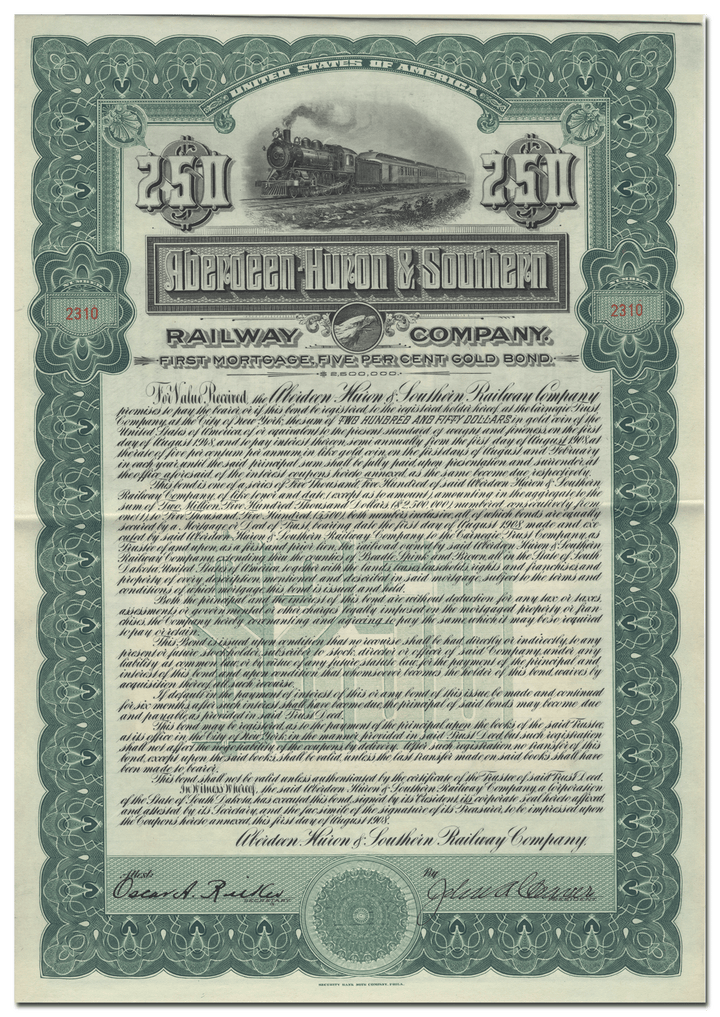 UNITED STATES OF AMERICA
250 250
Aberdeen-Huron & Southern
NUMBER NUMBER
2310 2310
RAILWAY COMPANY.
FIRST MORTGAGE, FIVE PER CENT GOLD BOND.
$2,500,000.
For Value Received, the Aberdeen Huron & Southern Railway Company
promises to pay the bearer, or if this bond be registered, to the registered holder hereof, at the Carnegie Trust
Company, at the City of New York, the sum of TWO HUNDRED AND FIFTY DOLLARS in gold coin of the
United States of America, of or equivalent to the present standard of weight and fineness, on the first
day of August 1948, and to pay interest thereon, semi annually, from the first day of August 1908, at
the rate of five per centum per annum in like gold coin, on the first days of August and February
in each year, until the said principal sum shall be fully paid, upon presentation and surrender, at
the office aforesaid, of the interest coupons hereto annexed as the same become due, respectively.
This bond is one of a series of Five Thousand, Five Hundred, of said Aberdeen Huron & Southern
Railway Company, of like tenor and date (except as to amount), amounting in the aggregate to the
sum of Two Million, Five Hundred Thousand Dollars ($2,500,000) numbered consecutively from
one (1), to Five Thousand, Five Hundred (5,500), both numbers inclusive, all of which bonds are equally
secured by a Mortgage or Deed of Trust, bearing date the first day of August 1908, made and exe
cuted by said Aberdeen Huron & Southern Railway Company to the Carnegie Trust Company, as
Trustee of and upon, as a first and prior lien, the railroad owned by said Aberdeen, Huron & Southern
Railway Company, extending thru the counties of Beadle, Spink and Brown, in the State of South
Dakota, United States of America, together with the lands, leases, leaseholds, rights and franchises, and
property of every description mentioned and described in said mortgage, subject to the terms and
conditions of which mortgage this bond is issued and held.
Both the principal and the interest of this bond are without deduction for any tax or taxes,
assessments or governmental or other charges legally imposed on the mortgaged property or fran
chises, the Company hereby covenanting and agreeing to pay the same which it may be so required
to pay or retain.
This Bond is issued upon condition that no recourse shall be had, directly or indirectly, to any
present or future stockholder, subscriber to stock, director or officer of said Company, under any
liability at common law, or by virtue of any future statute law, for the payment of the principal and
interest of this bond, and upon condition that whomsoever becomes the holder of this bond, waives by
acquisition thereof, all such recourse.
If default in the payment of interest of this or any bond of this issue, be made and continued
for six months after such interest shall have become due, the principal of said bonds may become due
and payable, as provided in said Trust Deed.
This bond may be registered, as to the payment of the principal, upon the books of the said Trustee,
at its office in the City of New York, in the manner provided in said Trust Deed, but such registration
shall not affect the negotiability of the coupons by delivery. After such registration, no transfer of this
bond, except upon the said books, shall be valid, unless the last transfer made on said books shall have
been made to bearer.
This bond shall not be valid unless authenticated by the certificate of the Trustee of said Trust Deed.
In Witness Whereof, the said Aberdeen Huron & Southern Railway Company, a Corporation
of the State of South Dakota, has executed this bond, signed by its President, its corporate seal hereto affixed,
and attested by its Secretary, and the facsimile of the signature of its Treasurer, to be impressed upon
the Coupons hereto annexed, this first day of August 1908.
Aberdeen Huron & Southern Railway Company.
Attest: By
Oscar A.
SECRETARY.
SECURITY BANK NOTE COMPANY, PHILA.